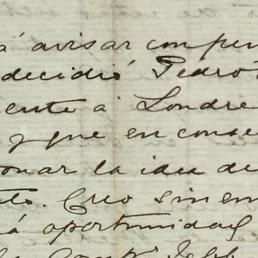 á avisar con per
decidió Pedro
ente á Londre
y que en conse
onar la idea de
to. Creo sin em
á oportunidad